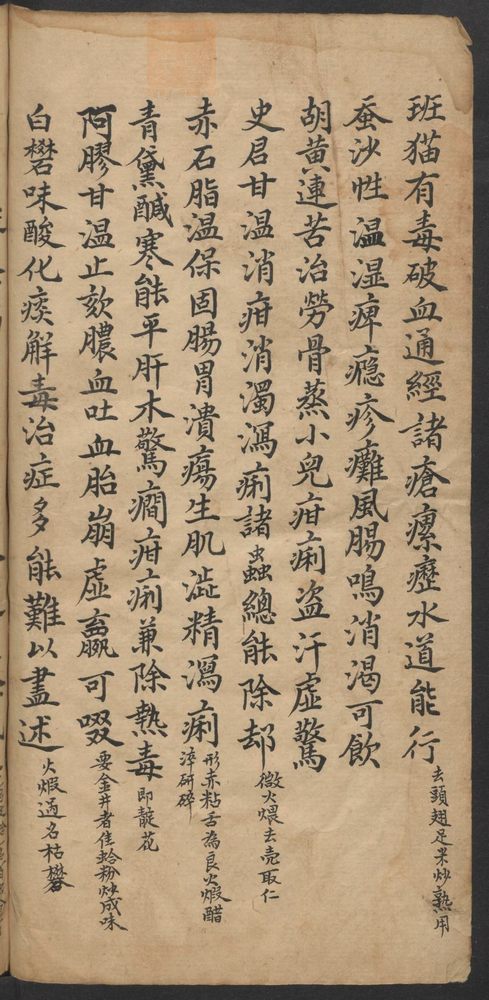 班猫有毒破血通經諸瘡瘰癧水道能行 去頭翅足米炒熟用
蚕沙性温湿痺瘾疹癱風腸鳴消渴可飲
胡黄連苦治勞骨蒸小兒疳痢盗汗虚驚
史君甘温消疳消濁瀉痢諸蟲總能除却 微火煨去壳取仁
赤石脂温保固腸胃潰瘍生肌澁精瀉痢 形赤粘舌為良火煅醋
淬研碎
青黛鹹寒能平肝木驚癇疳痢兼除熱毒 即靛花
阿膠甘温止欬膿血吐血胎崩虚羸可啜 要金井者佳蛤粉炒成味
白礬味酸化痰解毒治症多能難以盡述 火煅過名枯礬